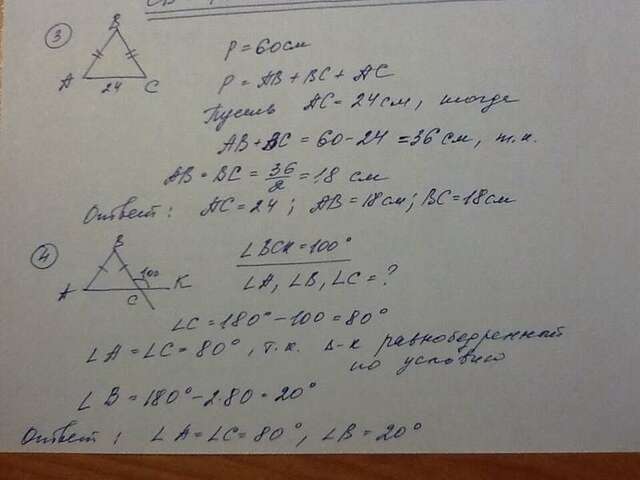 3
B
A
24
C
P = 60см
P = AB + BC + AC
Пусть AC = 24см, тогда
AB + BC = 60 - 24 = 36 см, т.к.
AB = BC = 36/2 = 18 см
Ответ: AC = 24; AB = 18см; BC = 18см
4
B
100
A
C
K
∠BCK = 100°
∠A, ∠B, ∠C = ?
∠C = 180° - 100 = 80°
∠A = ∠C = 80°, т.к. Δ-к равнобедренный
по условию
∠B = 180° - 2·80 = 20°
Ответ: ∠A = ∠C = 80°, ∠B = 20°